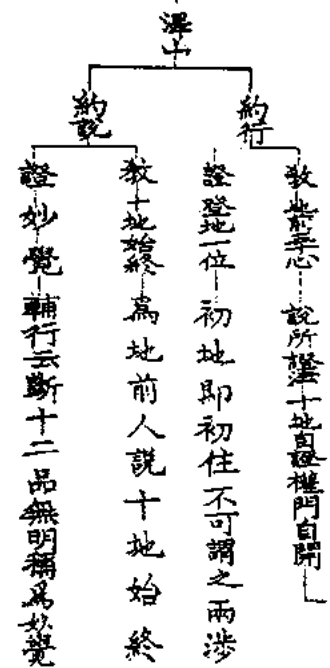 澤山
約行
教地前妄心 說所證法十地自證權門自開
證登地一位 初地即初住不可謂之兩涉
約說
教十地始終 為地前人說十地始終
證妙覺 輔行云斷十二品無明稱為妙覺